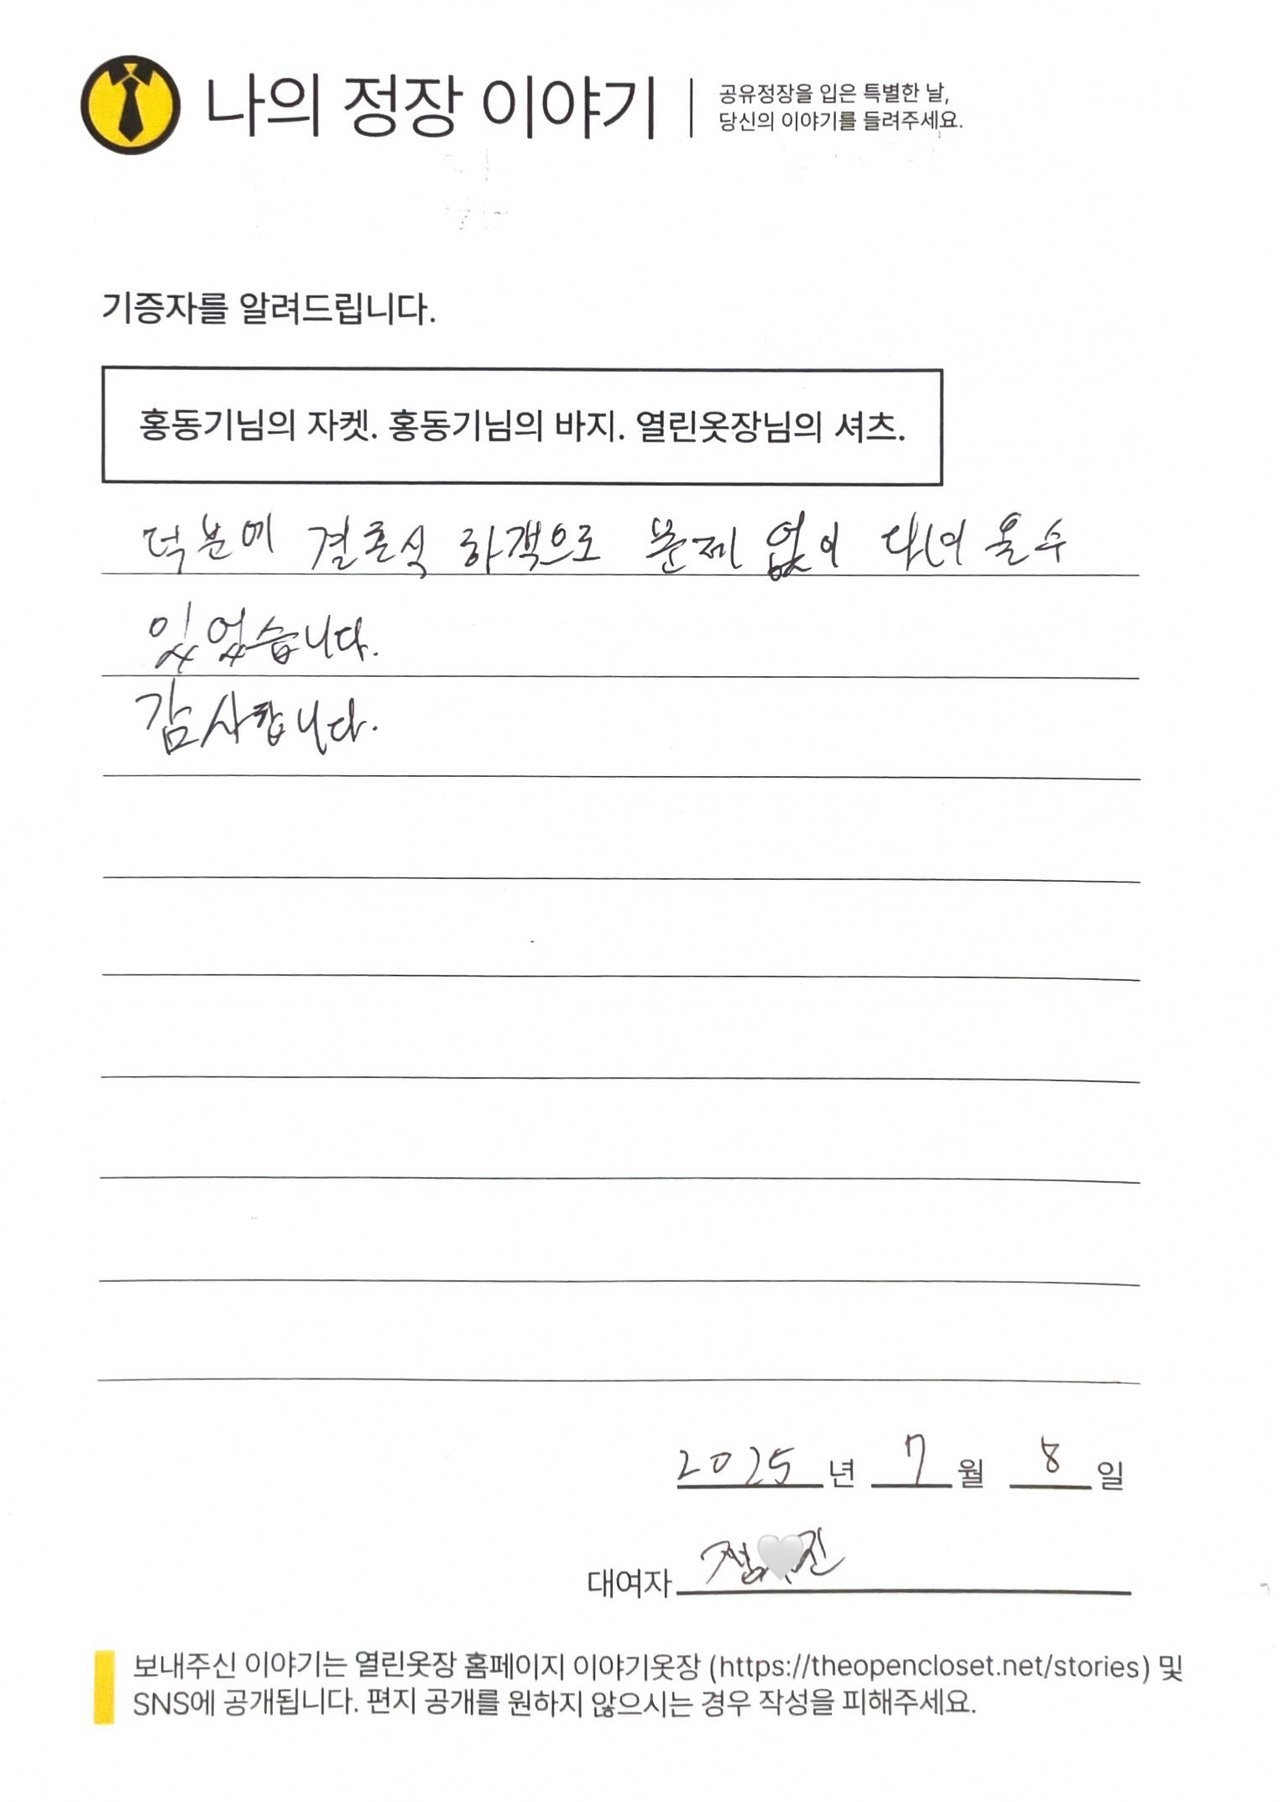 나의 정장 이야기
공유정장을 입은 특별한 날,
당신의 이야기를 들려주세요.
기증자를 알려드립니다.
홍동기님의 자켓. 홍동기님의 바지. 열린옷장님의 셔츠.
덕분에 결혼식 하객으로 문제 없이 다녀 올 수
있었습니다.
감사합니다.
2025 년 7 월 8 일
대여자
보내주신 이야기는 열린옷장 홈페이지 이야기옷장 (https://theopencloset.net/stories) 및
SNS에 공개됩니다. 편지 공개를 원하지 않으시는 경우 작성을 피해주세요.